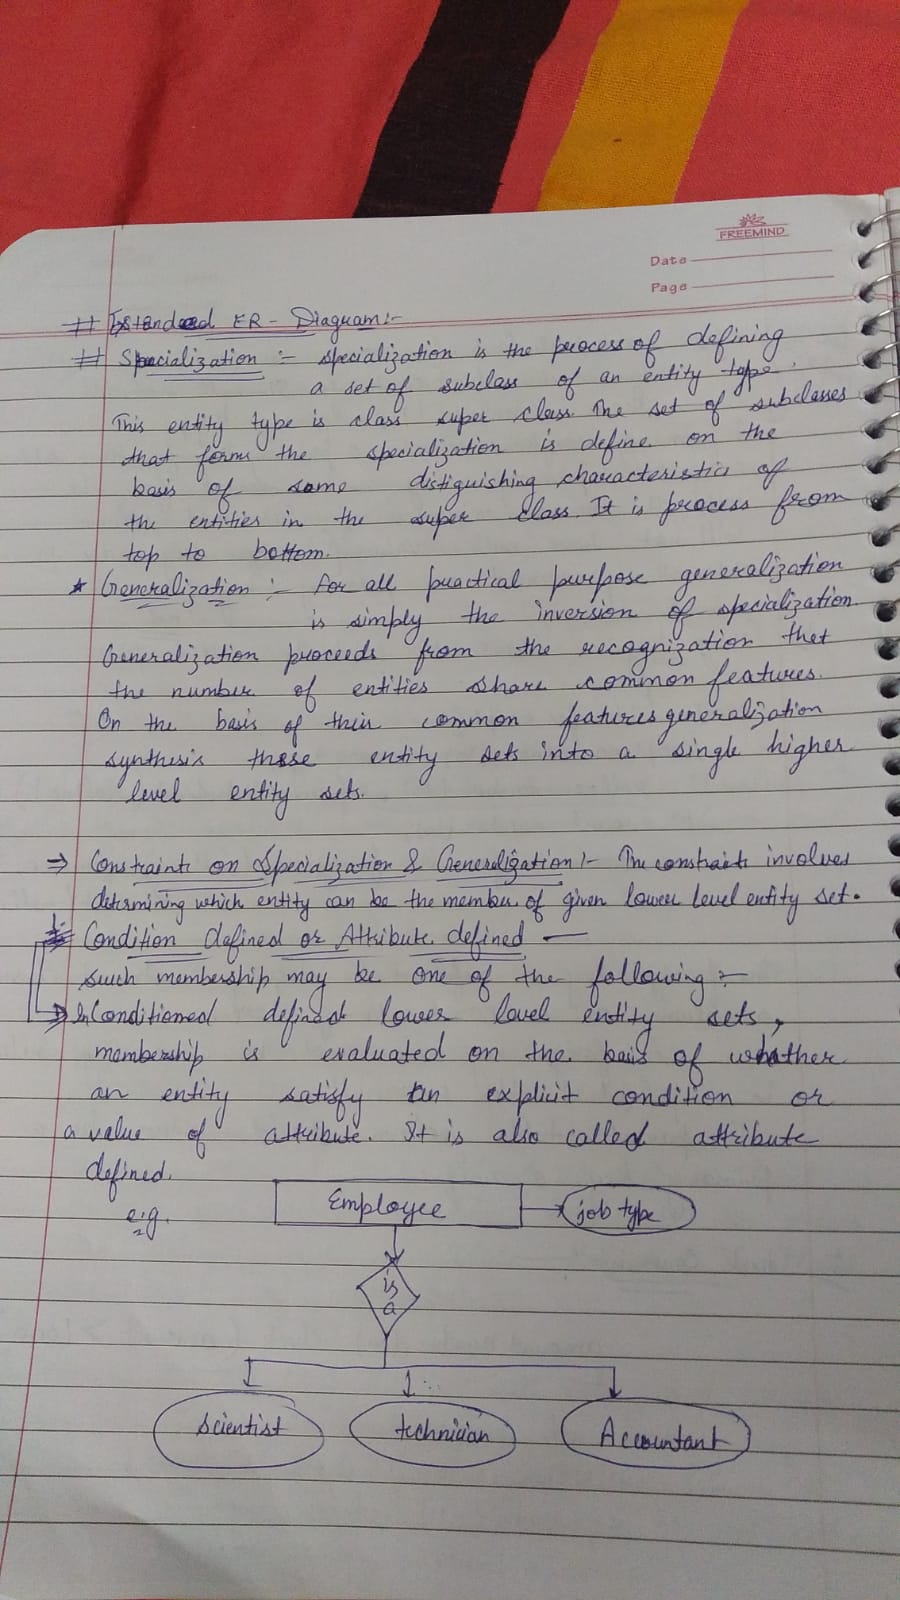 FREEMIND
Date
Page
# Extended ER - Diagram:-
# Specialization :- specialization is the process of defining
a set of subclass of an entity type.
This entity type is class super class. The set of subclasses
that forms the specialization is define on the
basis of some distiguishing characteristic of
the entities in the super class. It is process from
top to bottom.
* Generalization :- For all practical purpose generalization
is simply the inversion of specialization.
Generalization proceeds from the recognization that
the number of entities share common features.
On the basis of their common features generalization
synthesis these entity sets into a single higher
level entity sets.
⇒ Constraints on Specialization & Generalization :- The constraints involves
determining which entity can be the member of given lower level entity set.
Condition Defined or Attribute defined —
such membership may be one of the following :-
In Conditioned defined lower level entity sets,
membership is evaluated on the basis of whether
an entity satisfy an explicit condition or
a value of attribute. It is also called attribute
defined.
e.g. Employee job type
is
a
scientist technician Accountant